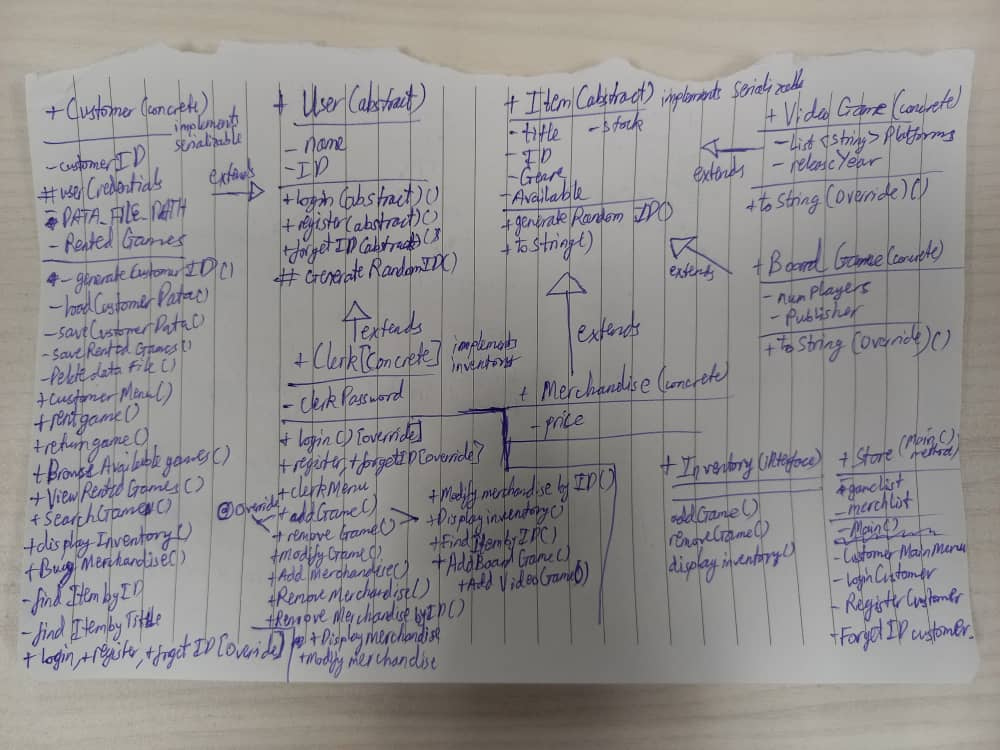 + Customer (concrete)
implements
serializable
- customerID
# userCredentials
- DATA_FILE_PATH
- Rented Games
- generateCustomerID()
- loadCustomerData()
- saveCustomerData()
- saveRented Games()
- Delete data File()
+ customerMenu()
+ rentgame()
+ returngame()
+ Browse Available games()
+ View Rented Games()
+ SearchGames()
+ display Inventory()
+ Buy Merchandise()
- find Item by ID
- find Item by Title
+ login, + register, + forget ID [override]
extends
+ User (abstract)
- name
- ID
+ login (abstract)()
+ register (abstract)()
+ forget ID (abstract)()
# Generate RandomID()
extends
+ Clerk [Concrete]
implements
inventory
- clerkPassword
+ login() [override]
+ register, + forgetID [override]
+ clerkMenu
@Override
+ addGame()
+ remove Game()
+ modifyGame()
+ Add Merchandise()
+ Remove Merchandise()
+ Remove Merchandise by ID()
+ Display merchandise
+ modify merchandise
+ Modify merchandise by ID()
+ Display inventory()
+ Find Item by ID()
+ Add Board Game()
+ Add Video Game()
+ Item (abstract) implements serializable
- title - stock
- ID
- Genre
- Available
+ generate Random ID()
+ toString()
extends
+ Merchandise (concrete)
- price
extends
+ Video Game (concrete)
- List <String> Platforms
- release Year
+ to String (Override)()
extends
+ Board Game (concrete)
- numPlayers
- Publisher
+ to String (Override)()
+ Inventory (interface)
addGame()
removeGame()
display inventory()
+ Store (Main()
method)
gamelist
- merchlist
- Main()
- Customer Main Menu
- login Customer
- Register Customer
+ Forget ID customer.